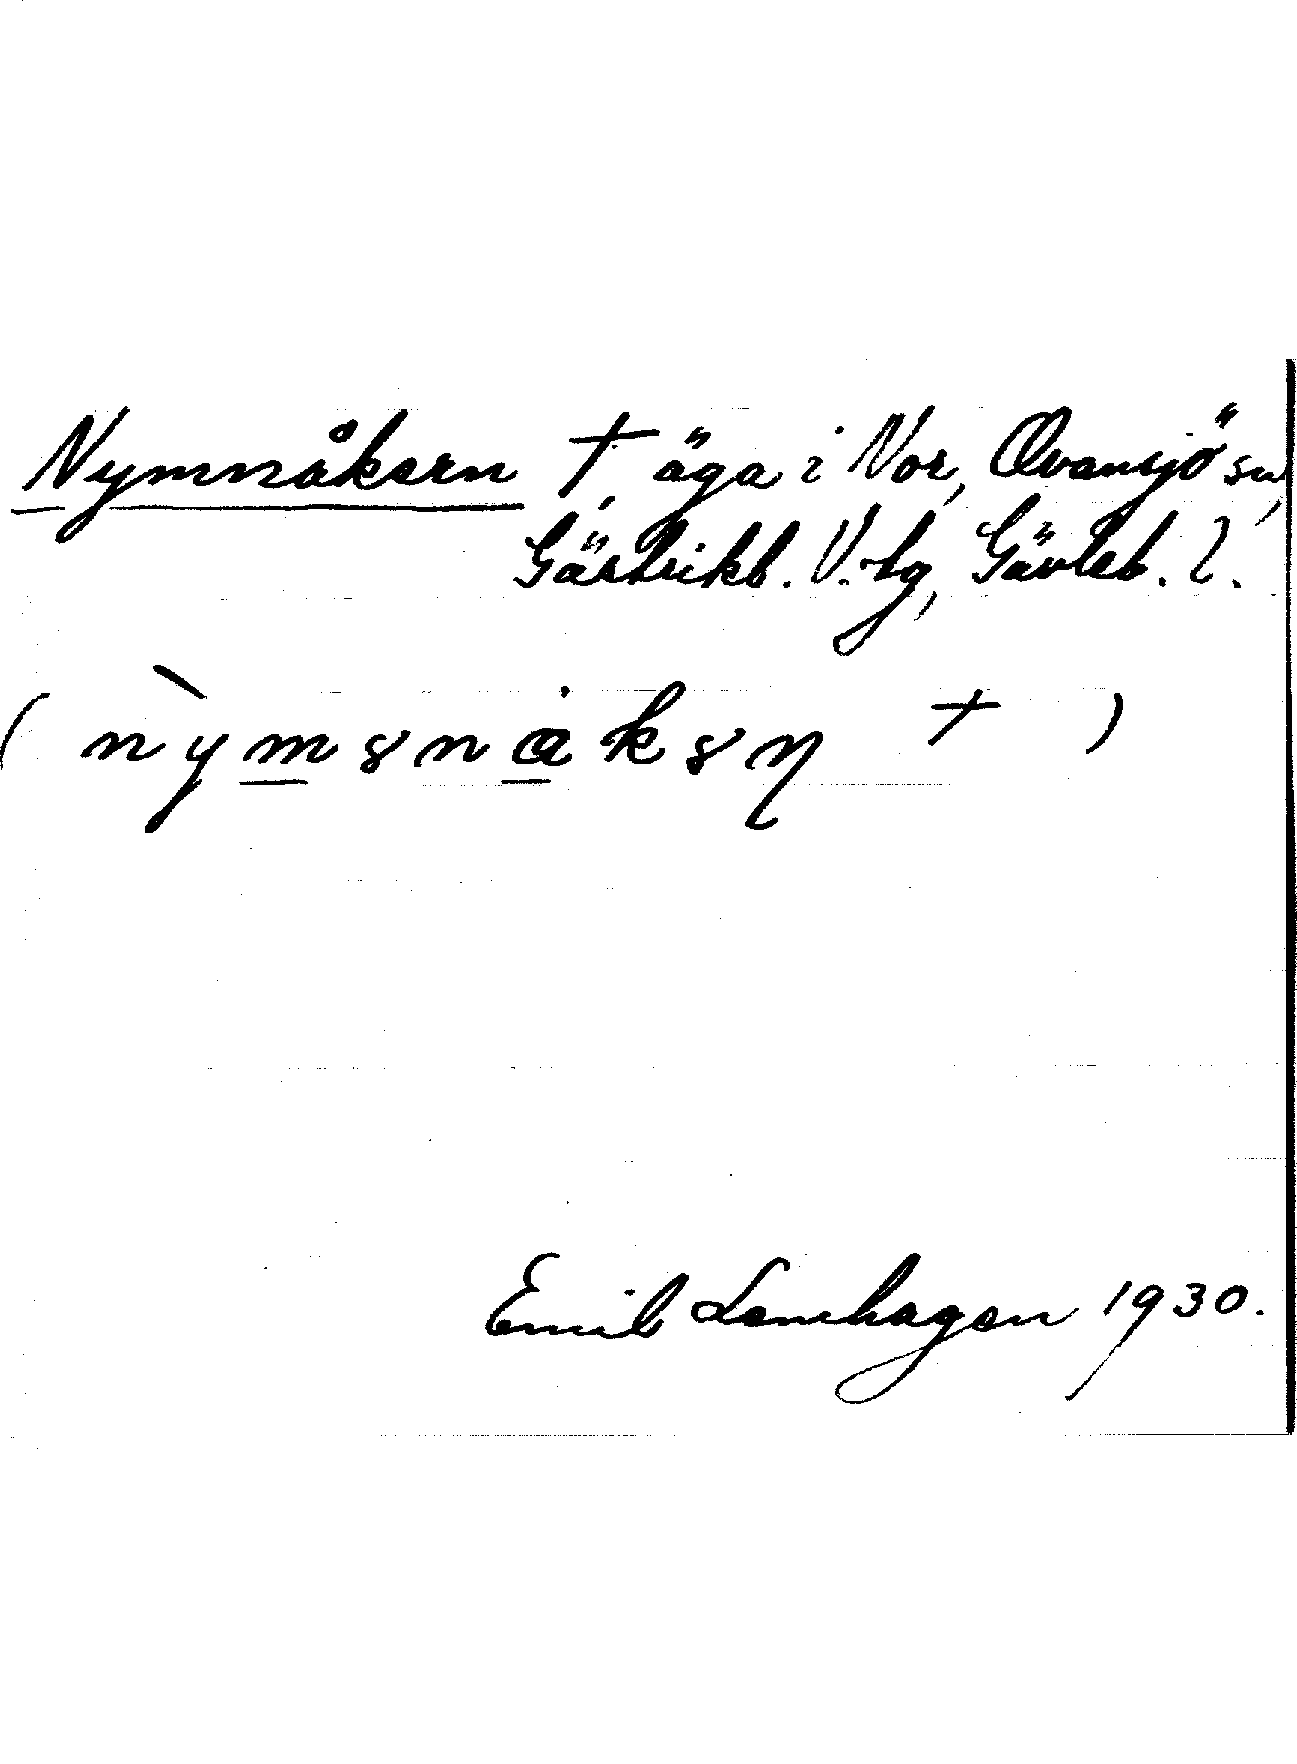 Nymnåkern †, äga i Nor, Ovansjö sn,
Gästrikl. V. tg, Gävleb. l.
( nỳmsnåksn † )
Emil Lenhagen 1930.